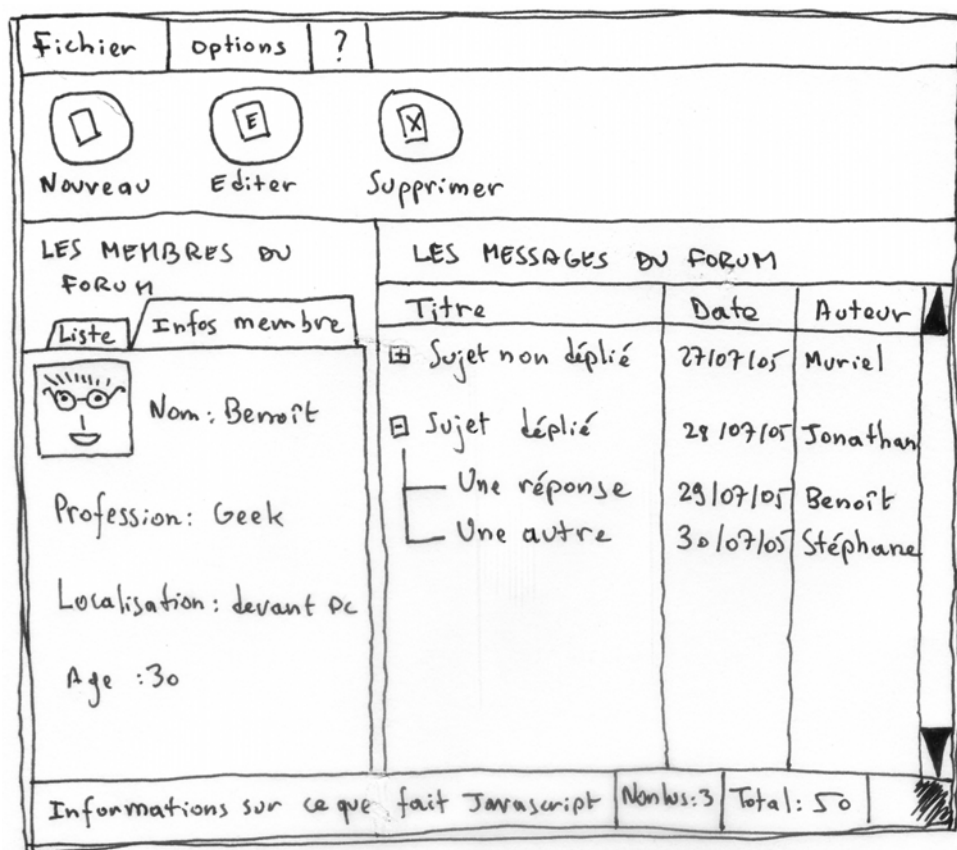 Fichier options ?
E X
Nouveau Editer Supprimer
LES MEMBRES DU
FORUM
Liste Infos membre
Nom: Benoît
Profession: Geek
Localisation: devant PC
Age : 30
LES MESSAGES DU FORUM
Titre Date Auteur
Sujet non déplié 27/07/05 Muriel
Sujet déplié 28/07/05 Jonathan
Une réponse 29/07/05 Benoît
Une autre 30/07/05 Stéphane
Informations sur ce que fait Javascript Non lus: 3 Total: 50